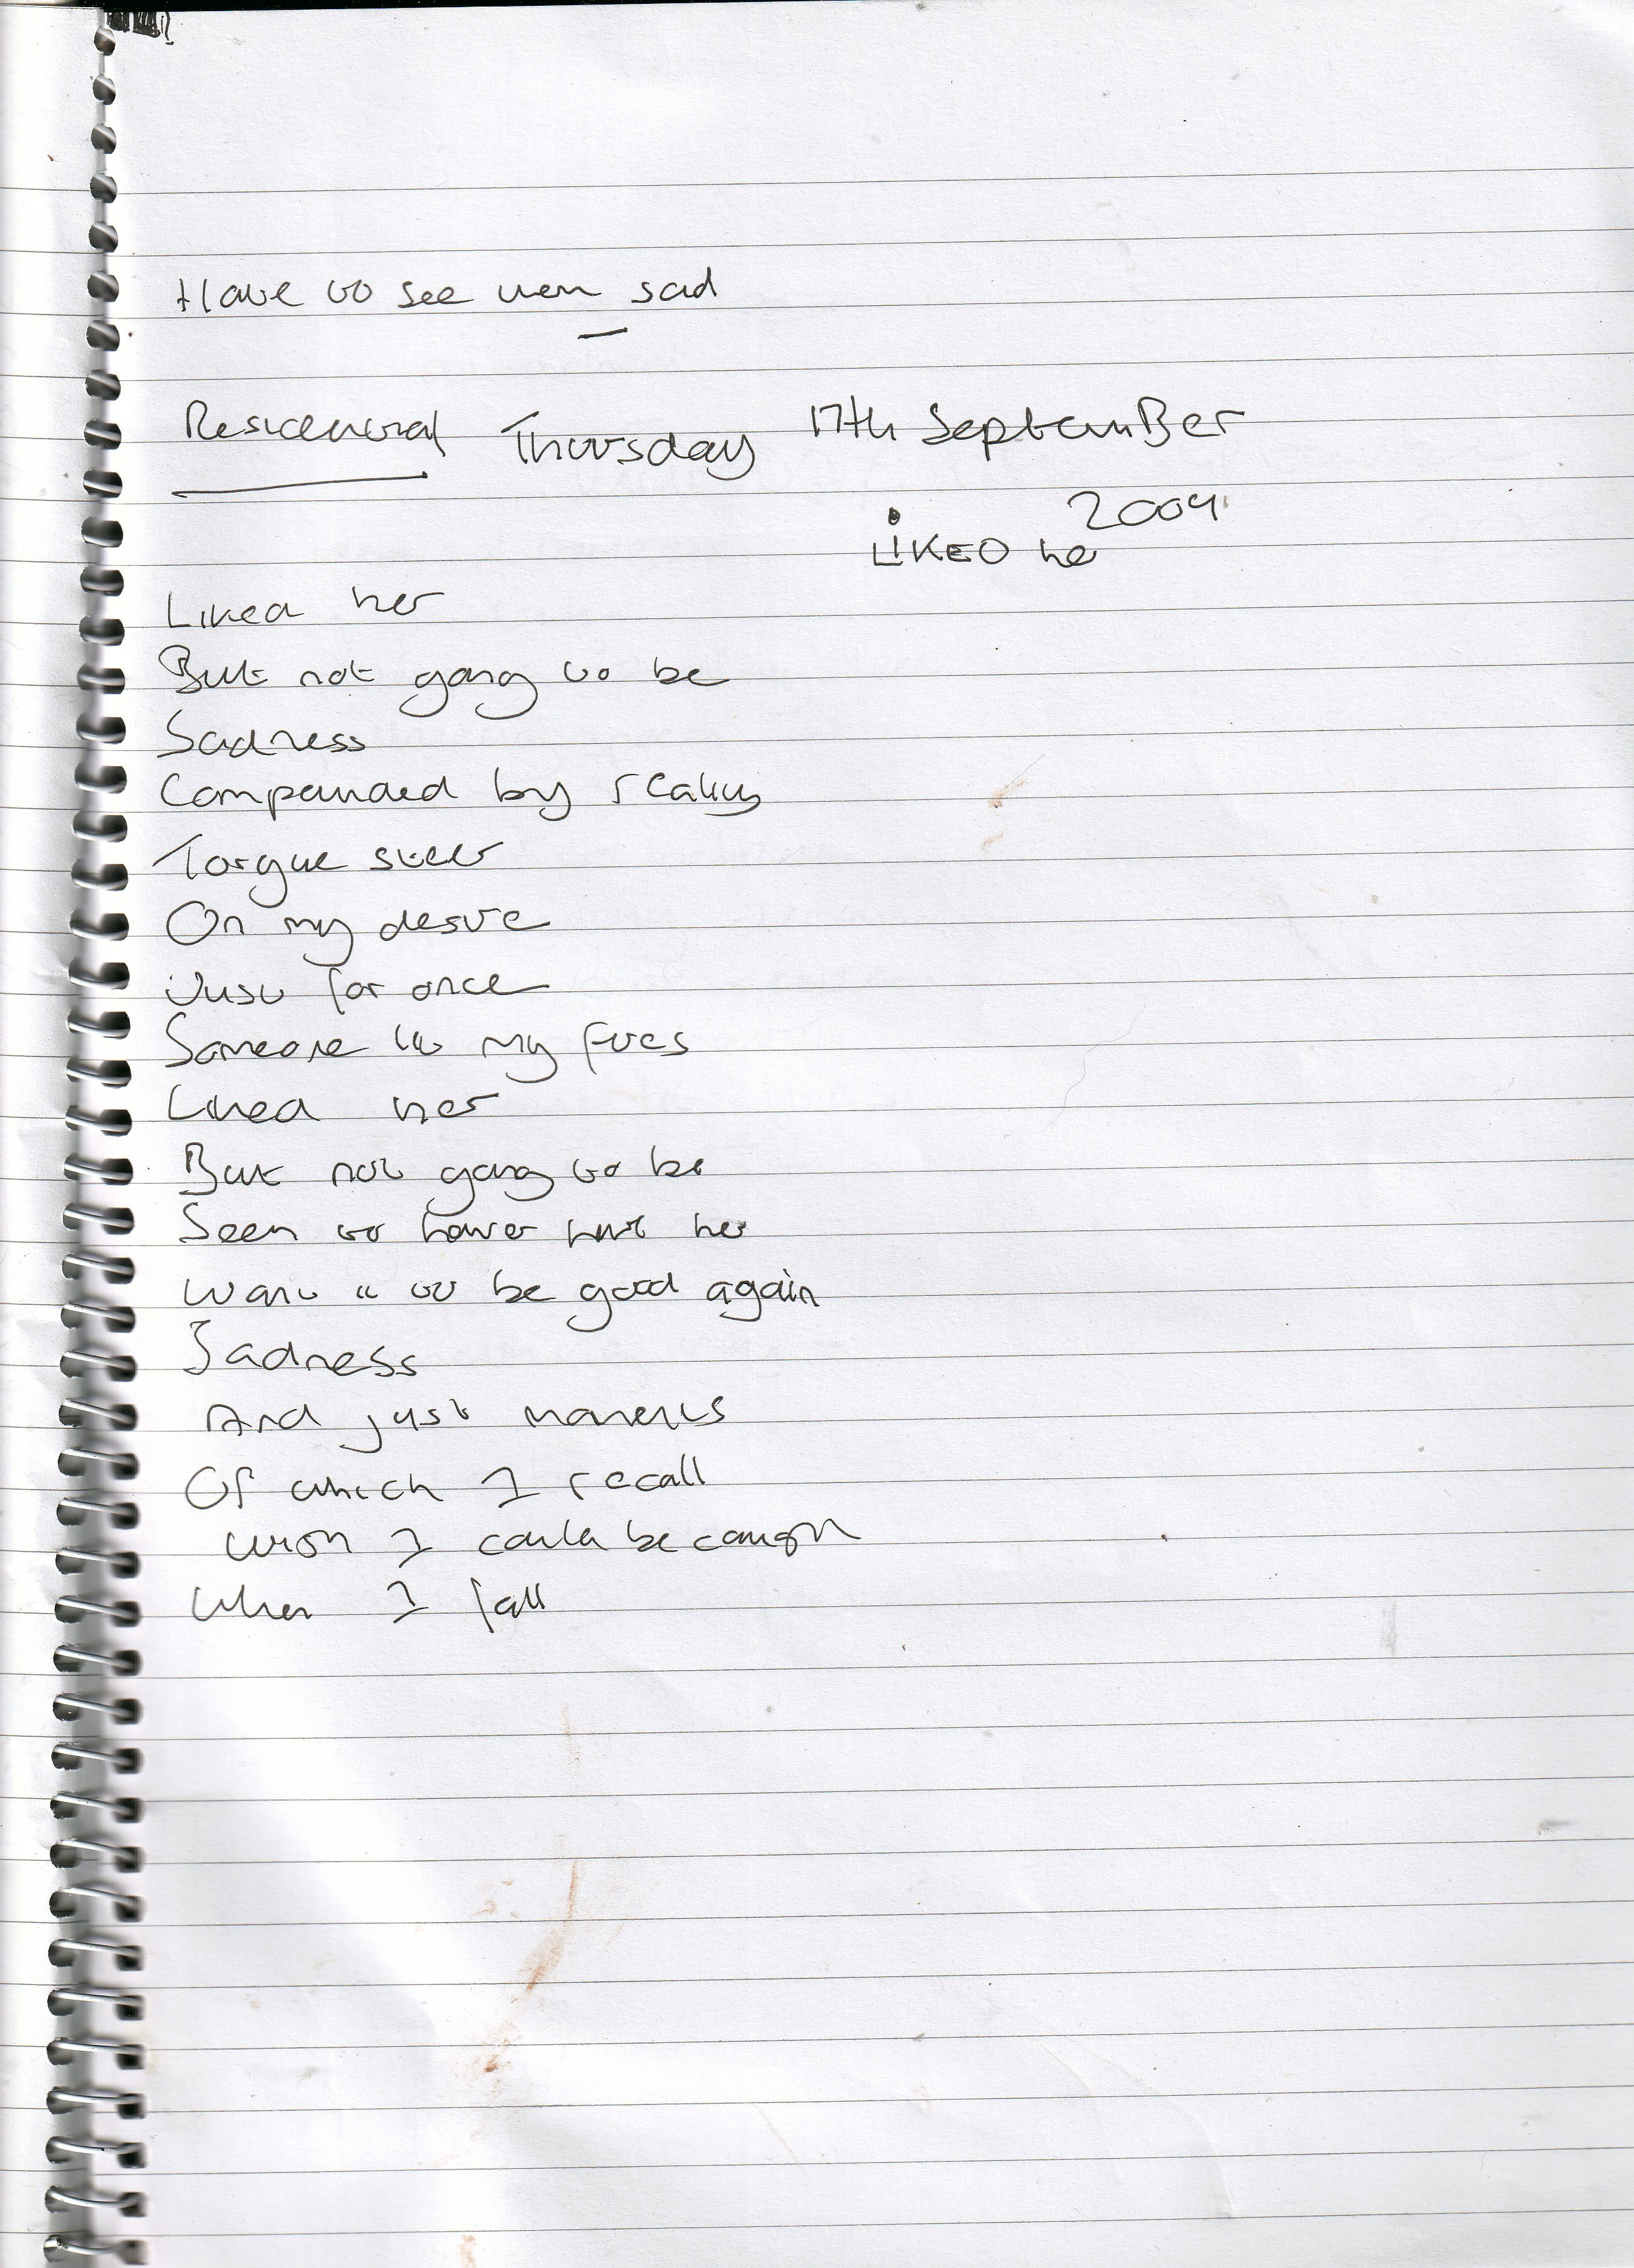 Have to see them sad
Residential Thursday 17th September
2009
LIKED he
Liked her
But not going to be
Sadness
Compounded by reality
Torque steer
On my desire
Just for once
Someone lit my fires
Liked her
But not going to be
Seen to have hurt her
Want it to be good again
Sadness
And just moments
Of which I recall
Wish I could be caught
When I fall